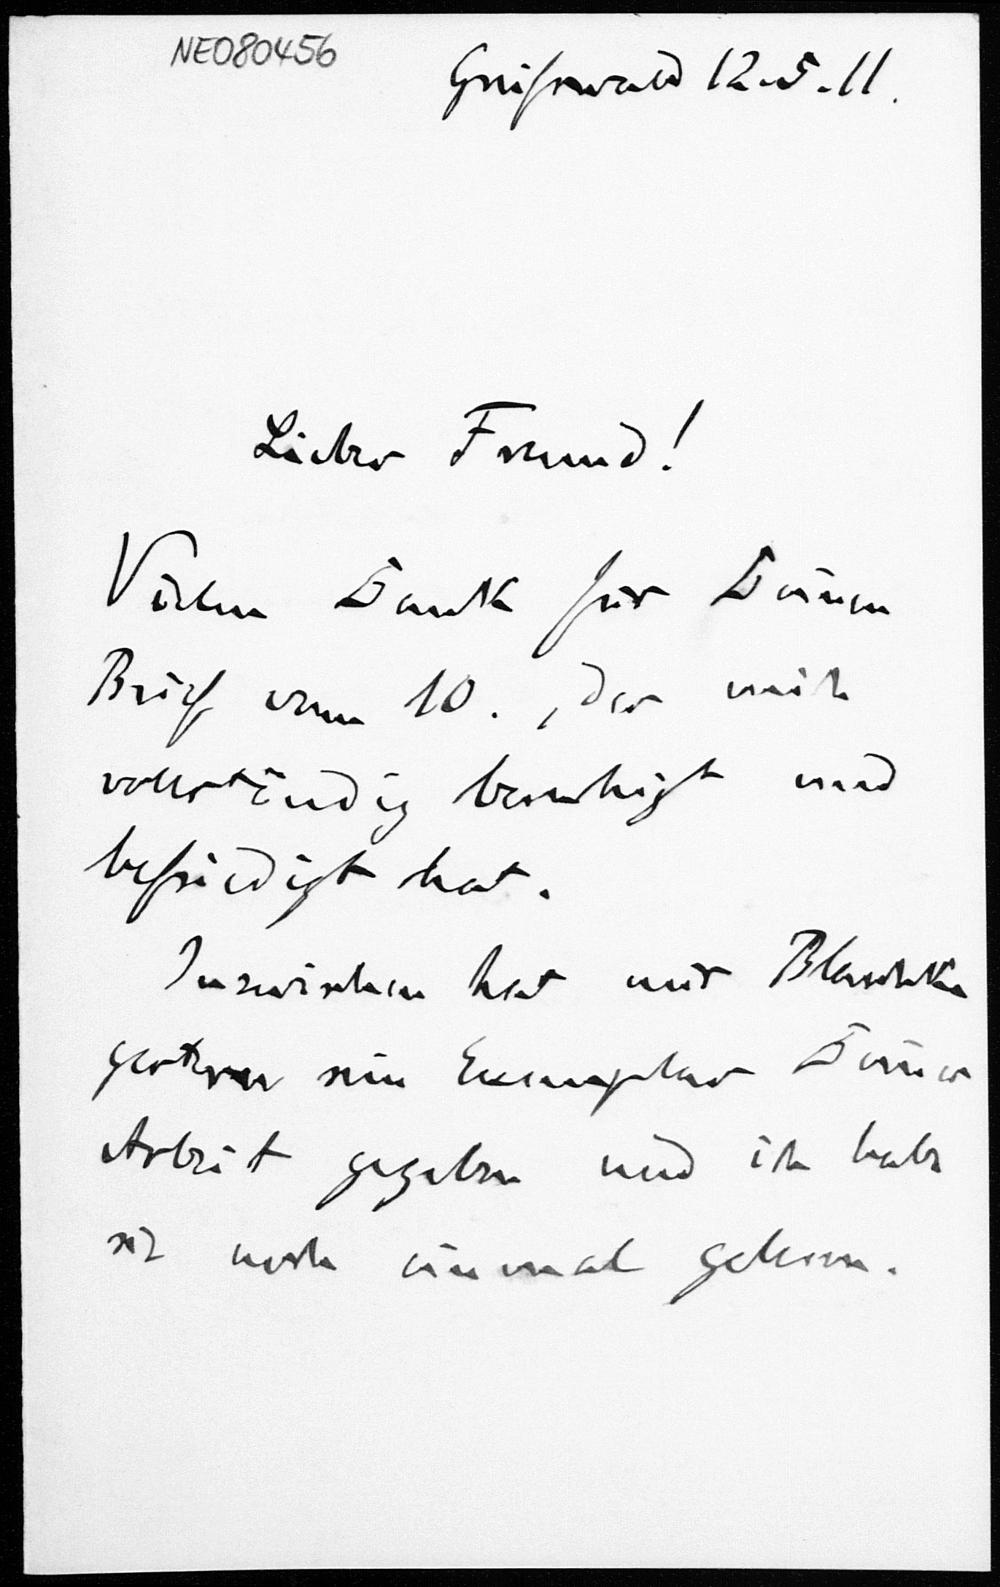 NE080456
Greifswald 12.5.11.
Lieber Freund!
Vielen Dank für Deinen
Brief vom 10., der mich
vollständig beruhigt und
befriedigt hat.
Inzwischen hat mir Blaschke
gestern sein Exemplar Deiner
Arbeit gegeben und ich habe
sie noch einmal gelesen.